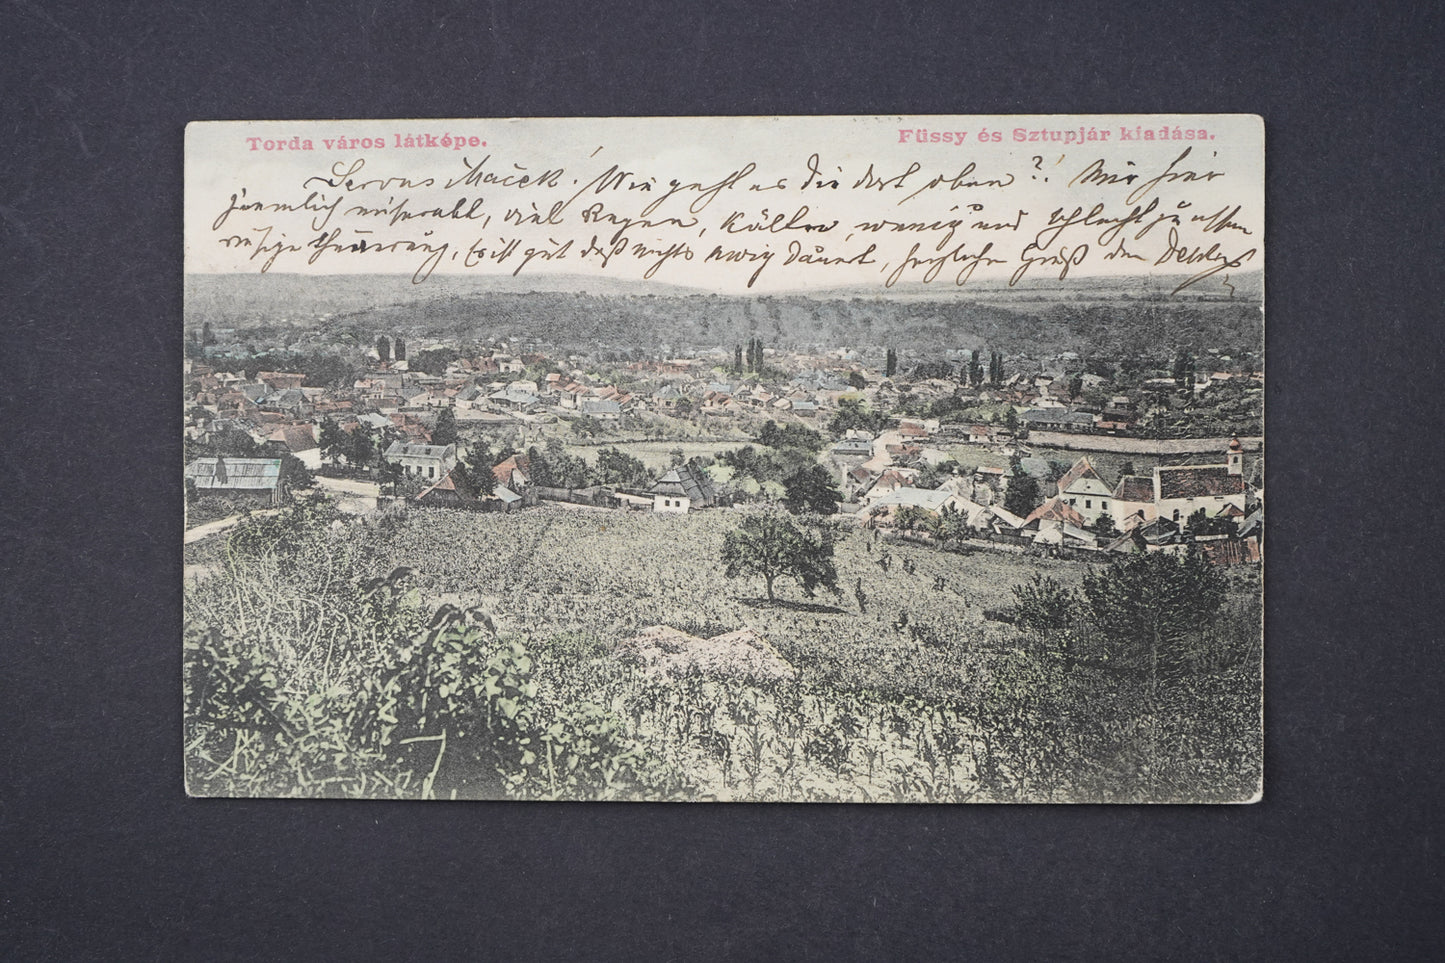 Torda város látképe.
Füssy és Sztupjár kiadása.
Servus Maček! Wie geht es dir dort oben?! Mir hier
ziemlich miserabel, viel Regen, Kälte, wenig und schlecht zu essen
riesige Theuerung. Es ist gut daß nichts ewig dauert, herzliche Grüß dein